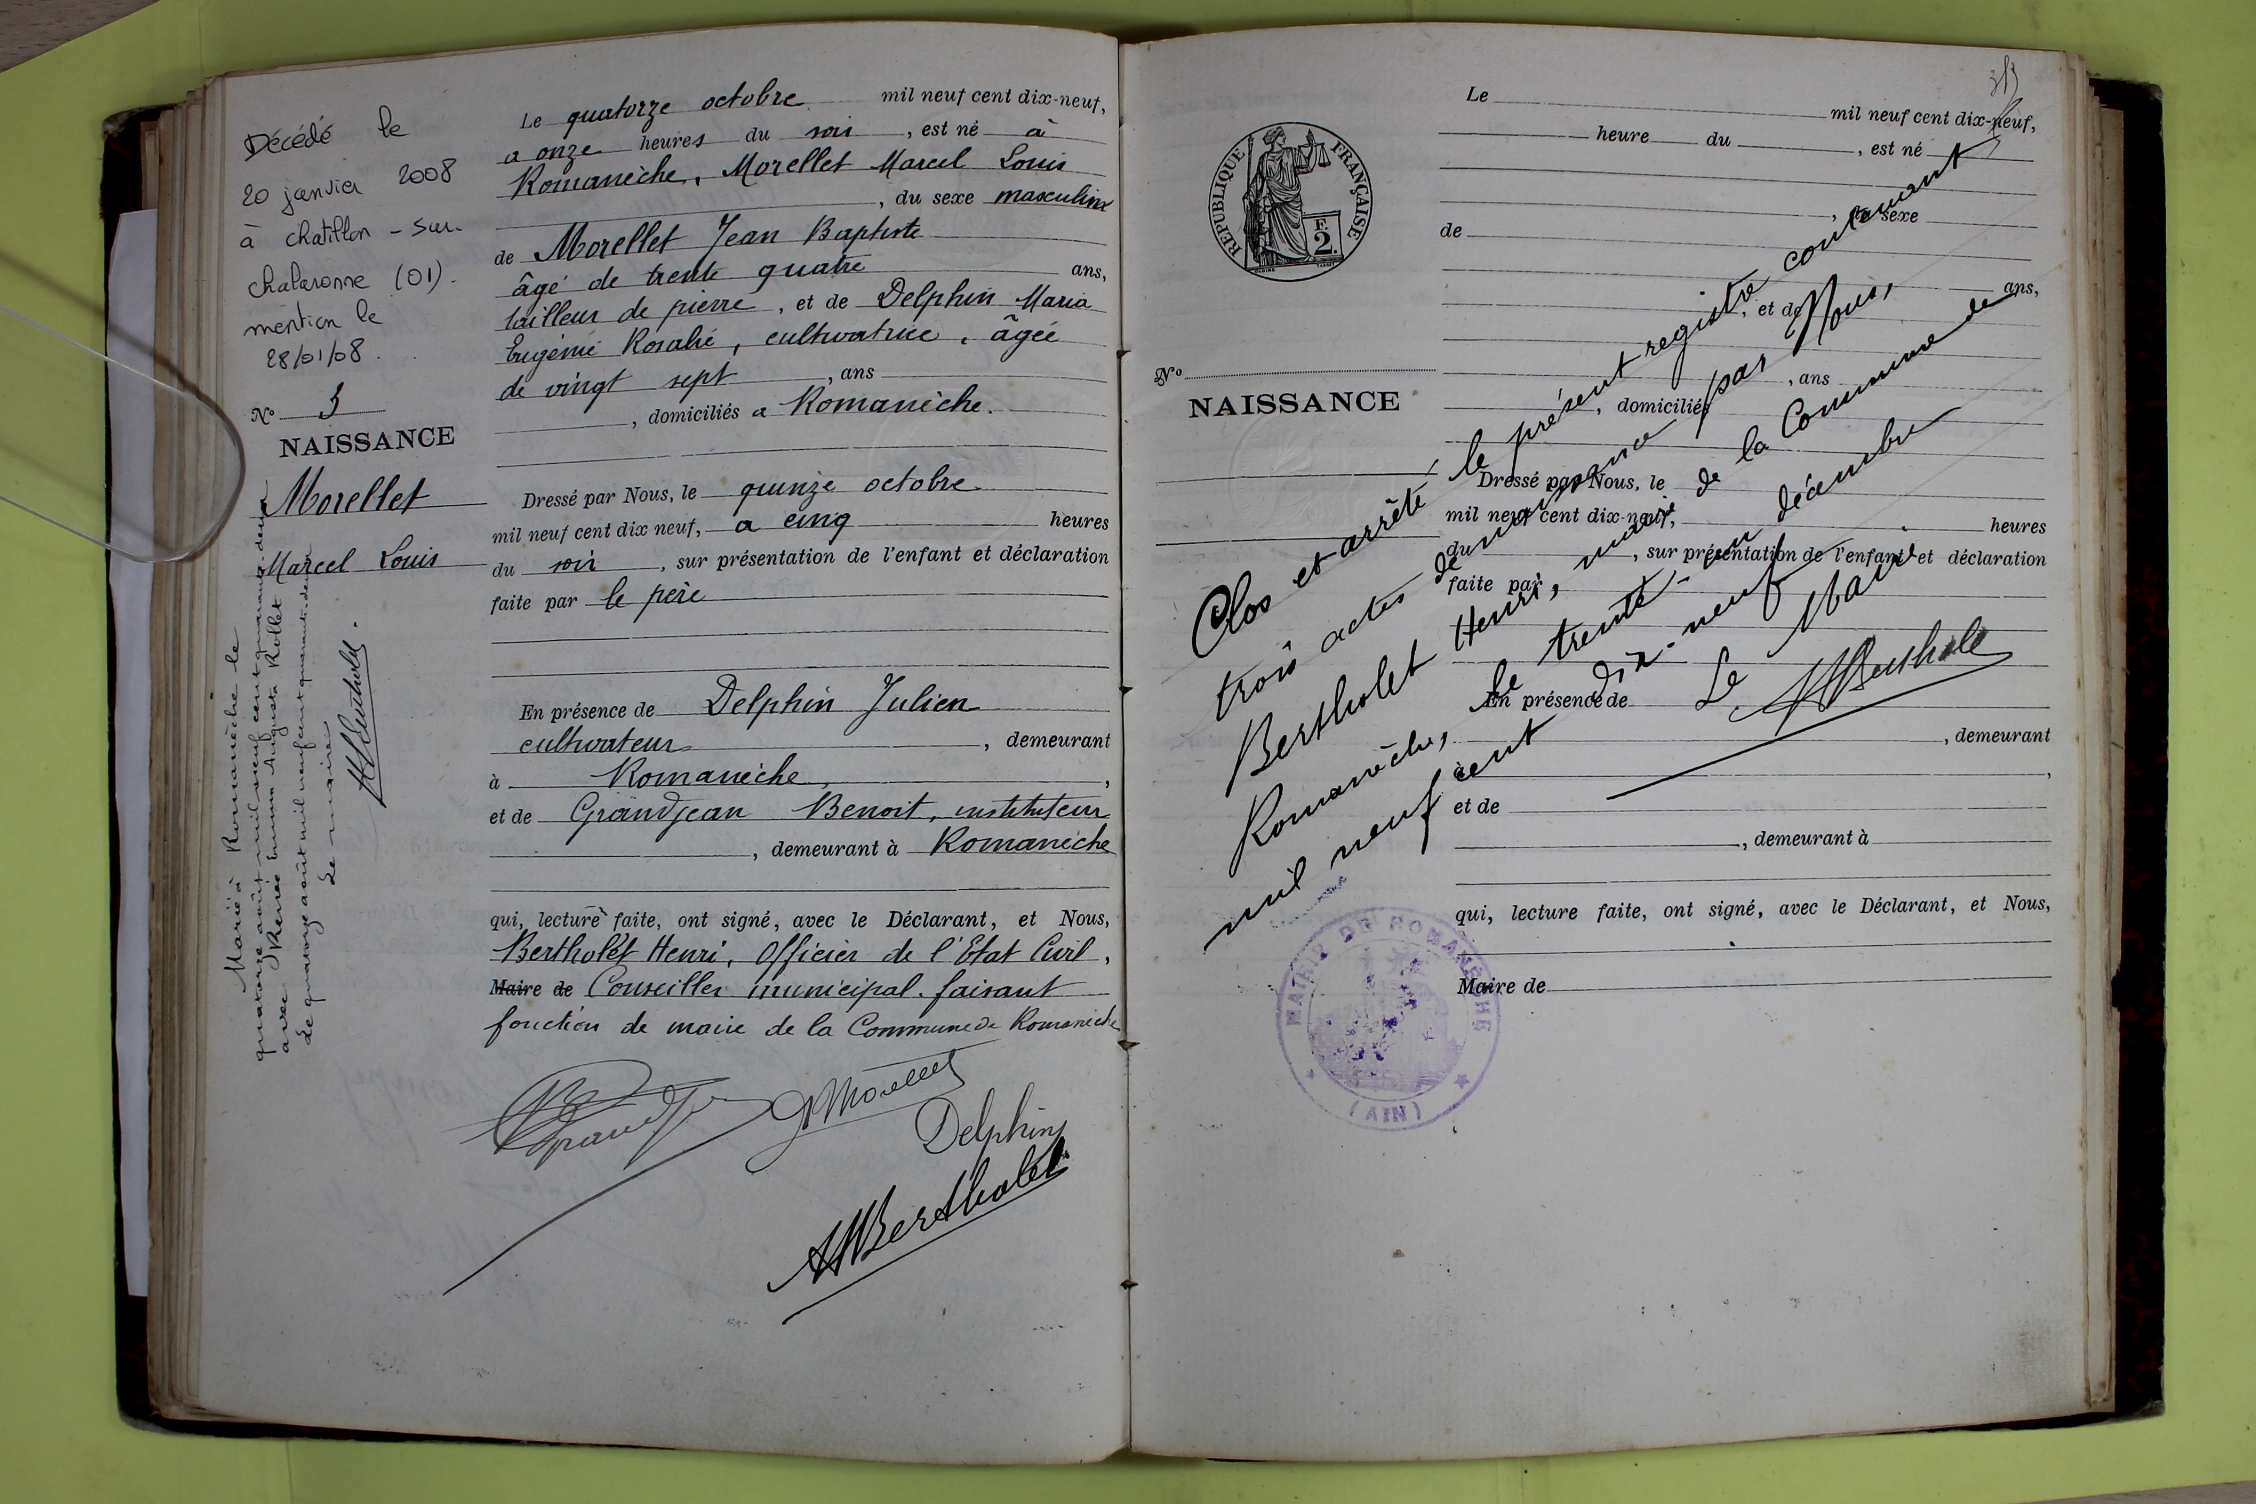 Décédé le
20 janvier 2008
à chatillon - sur -
chalaronne (01).
mention le
28/01/08.
N° 3
NAISSANCE
Morellet
Marcel Louis
Marié à Romanèche le
quatorze août mil neuf cent quarante deux
avec Renée Emma Augusta Rollet
Le quatorze août mil neuf cent quarante deux
Le maire
H Bertholet
Le quatorze octobre mil neuf cent dix-neuf,
a onze heures du soir, est né à
Romanèche, Morellet Marcel Louis
, du sexe masculin
de Morellet Jean Baptiste
âgé de trente quatre ans,
tailleur de pierre, et de Delphin Maria
Eugénie Rosalie, cultivatrice, âgée
de vingt sept, ans
, domiciliés a Romanèche.
Dressé par Nous, le quinze octobre
mil neuf cent dix neuf, a cinq heures
du soir, sur présentation de l'enfant et déclaration
faite par le père
En présence de Delphin Julien
cultivateur, demeurant
à Romanèche,
et de Grandjean Benoit, instituteur
, demeurant à Romanèche
qui, lecture faite, ont signé, avec le Déclarant, et Nous,
Bertholet Henri, Officier de l'Etat Civil,
Maire de Conseiller municipal faisant
fonction de maire de la Commune de Romanèche
B Grandjean
Morellet
Delphin
H Bertholet
RÉPUBLIQUE FRANÇAISE
F.
2.
N°
NAISSANCE
Le mil neuf cent dix-neuf,
heure du, est né
, du sexe
de
ans,
, et de
, ans
, domiciliés
Dressé par Nous, le
mil neuf cent dix-neuf, heures
du, sur présentation de l'enfant et déclaration
faite par
En présence de
, demeurant
à,
et de
, demeurant à
qui, lecture faite, ont signé, avec le Déclarant, et Nous,
Maire de
Clos et arrêté le présent registre contenant
trois actes de naissance par Nous,
Bertholet Henri, maire de la Commune de
Romanèche, le trente-un décembre
mil neuf cent dix-neuf
Le Maire
H Bertholet
MAIRIE DE ROMANÈCHE
(AIN)